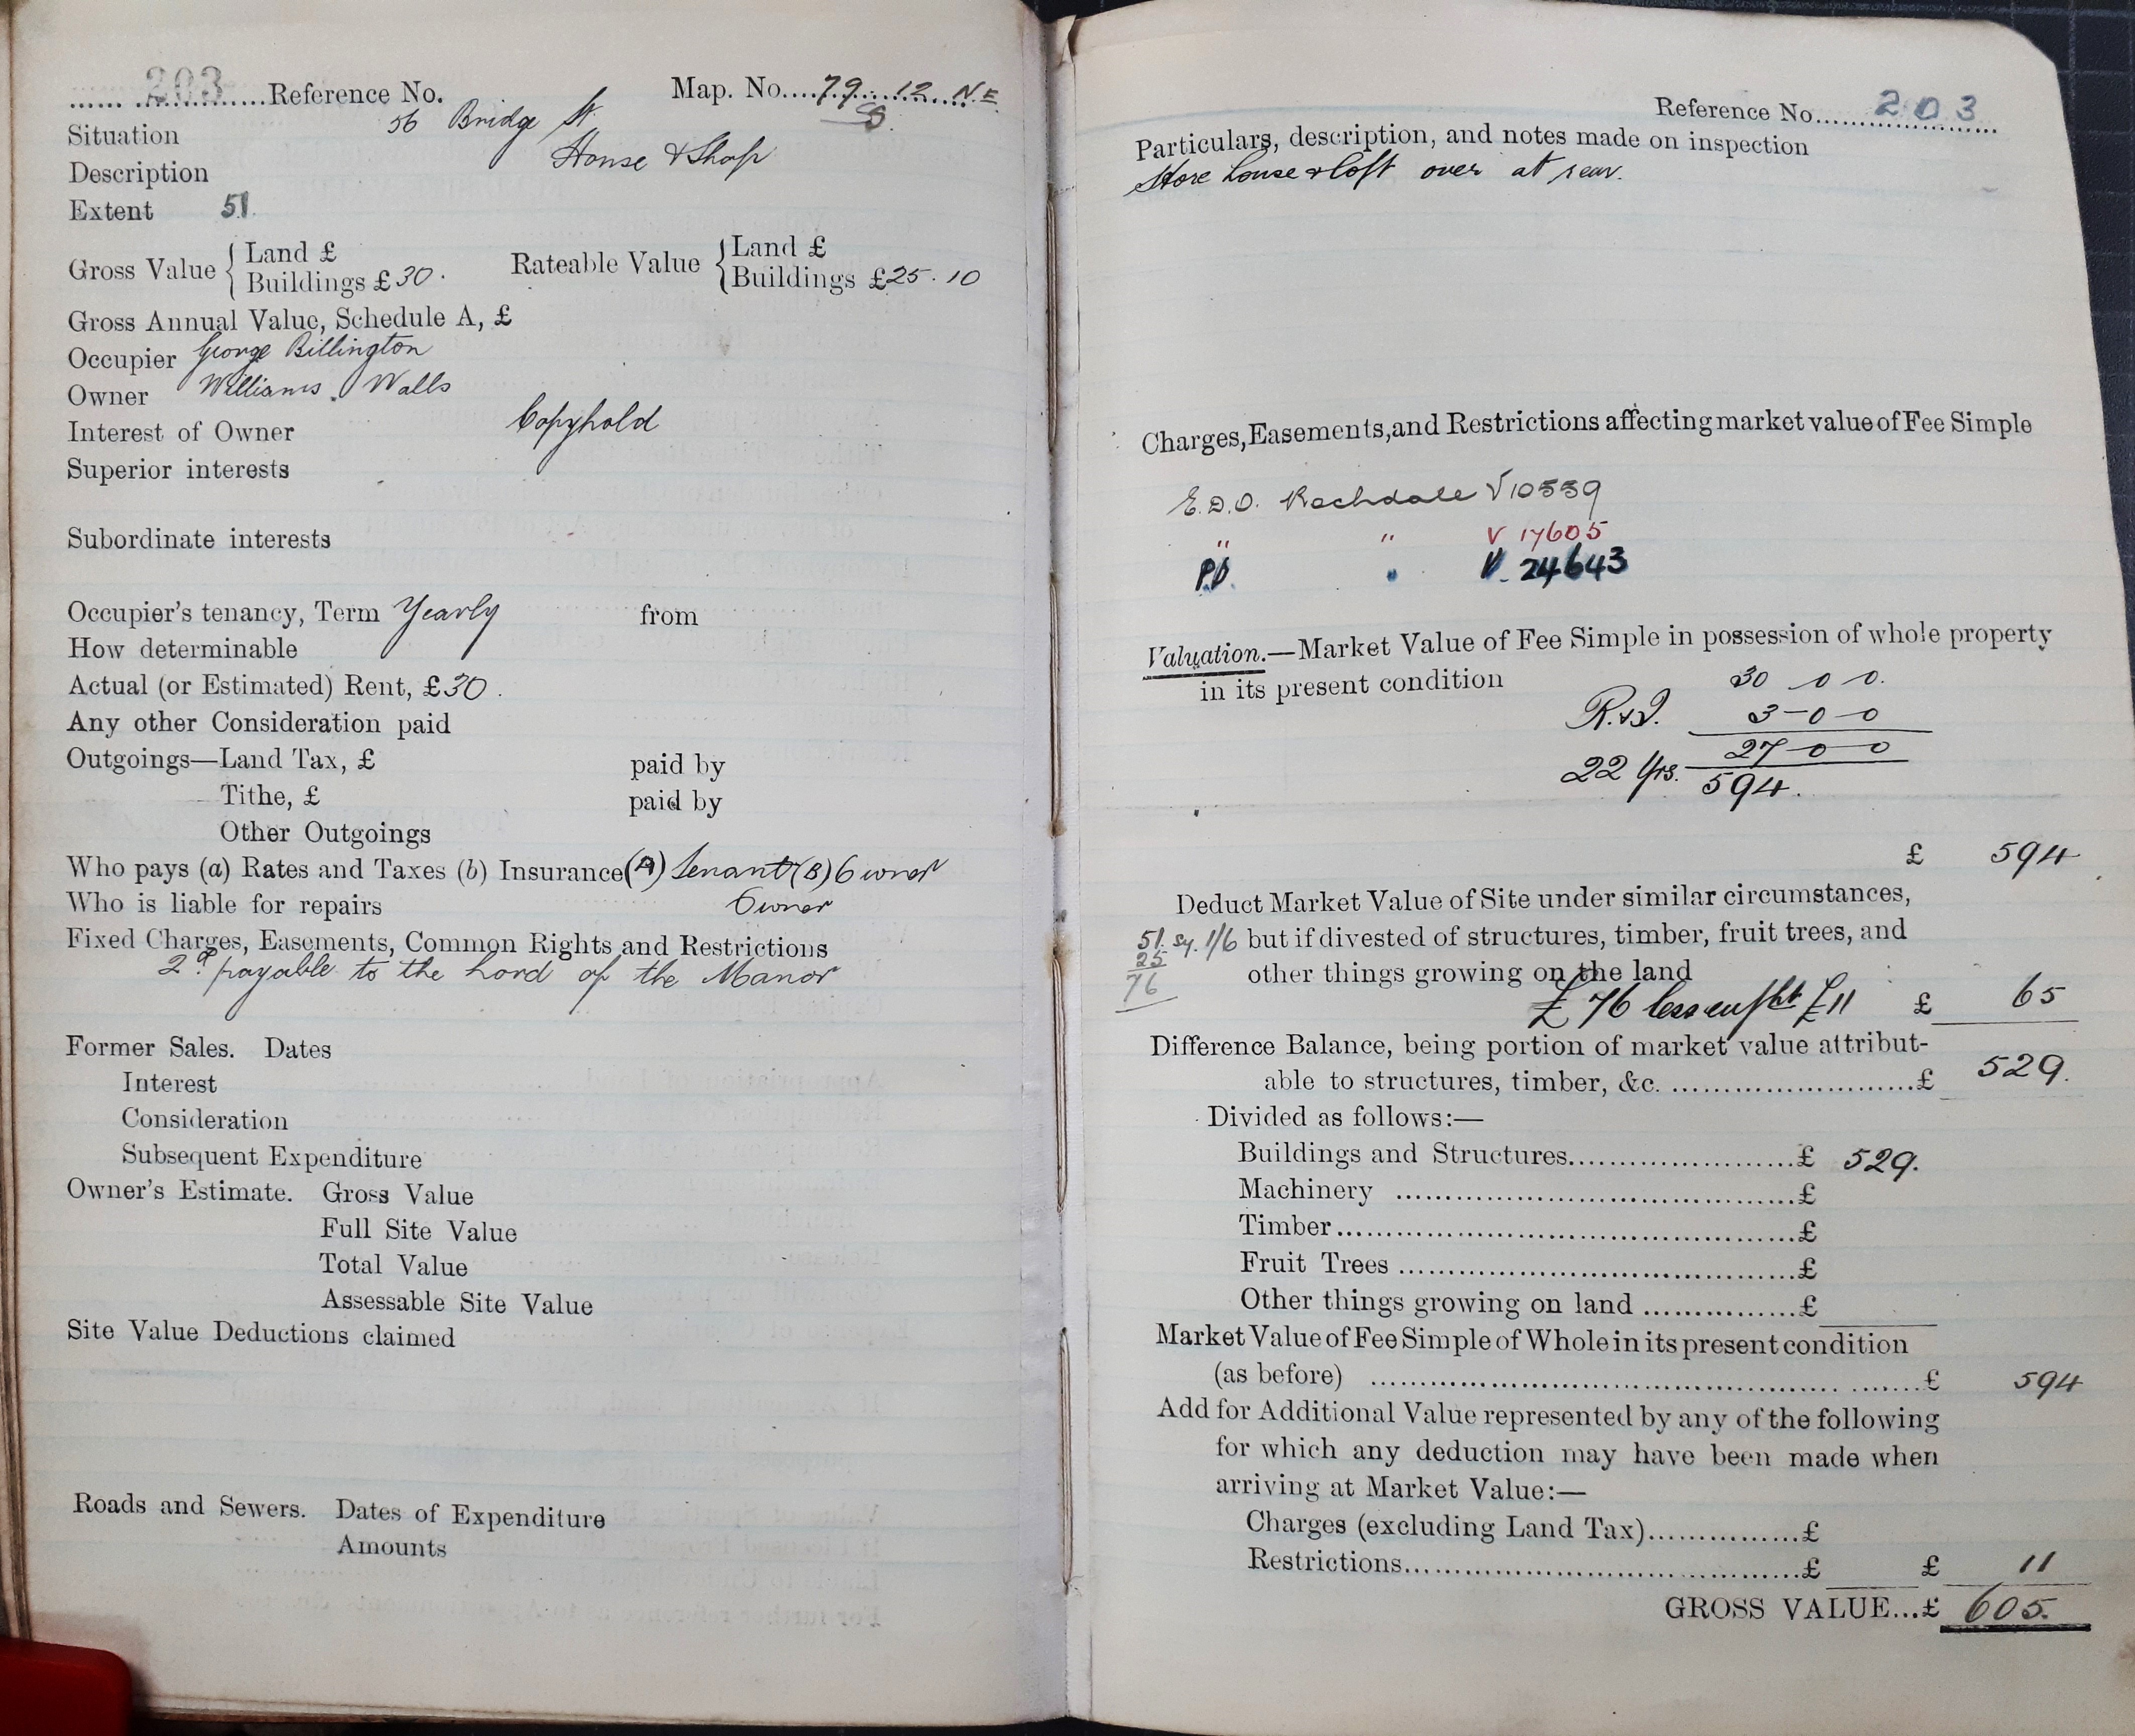 203 Reference No. Map. No. 79. 12 N.E
S.
Situation 56 Bridge St.
Description House & Shop
Extent 51.
Gross Value { Land £ Rateable Value { Land £
Buildings £30. Buildings £25.10
Gross Annual Value, Schedule A, £
Occupier George Billington
Owner Williams. Walls
Interest of Owner Copyhold
Superior interests
Subordinate interests
Occupier's tenancy, Term Yearly from
How determinable
Actual (or Estimated) Rent, £30.
Any other Consideration paid
Outgoings—Land Tax, £ paid by
Tithe, £ paid by
Other Outgoings
Who pays (a) Rates and Taxes (b) Insurance (A) Tenant (B) Owner
Who is liable for repairs Owner
Fixed Charges, Easements, Common Rights and Restrictions
2d payable to the Lord of the Manor
Former Sales. Dates
Interest
Consideration
Subsequent Expenditure
Owner's Estimate. Gross Value
Full Site Value
Total Value
Assessable Site Value
Site Value Deductions claimed
Roads and Sewers. Dates of Expenditure
Amounts
Reference No. 203
Particulars, description, and notes made on inspection
Store house & loft over at rear.
Charges, Easements, and Restrictions affecting market value of Fee Simple
E.D.O. Rochdale V10559
" " V 17605
P.D. " V. 24643
Valuation.—Market Value of Fee Simple in possession of whole property
in its present condition 30 0 0.
R.&I. 3-0-0
27-0-0
22 Yrs. 594.
£ 594
Deduct Market Value of Site under similar circumstances,
51. sy. 1/6 but if divested of structures, timber, fruit trees, and
25
76 other things growing on the land
£76 less enft £11 £ 65
Difference Balance, being portion of market value attribut-
able to structures, timber, &c. £ 529.
Divided as follows:—
Buildings and Structures £ 529.
Machinery £
Timber £
Fruit Trees £
Other things growing on land £
Market Value of Fee Simple of Whole in its present condition
(as before) £ 594
Add for Additional Value represented by any of the following
for which any deduction may have been made when
arriving at Market Value:—
Charges (excluding Land Tax) £
Restrictions £ £ 11
GROSS VALUE...£ 605.